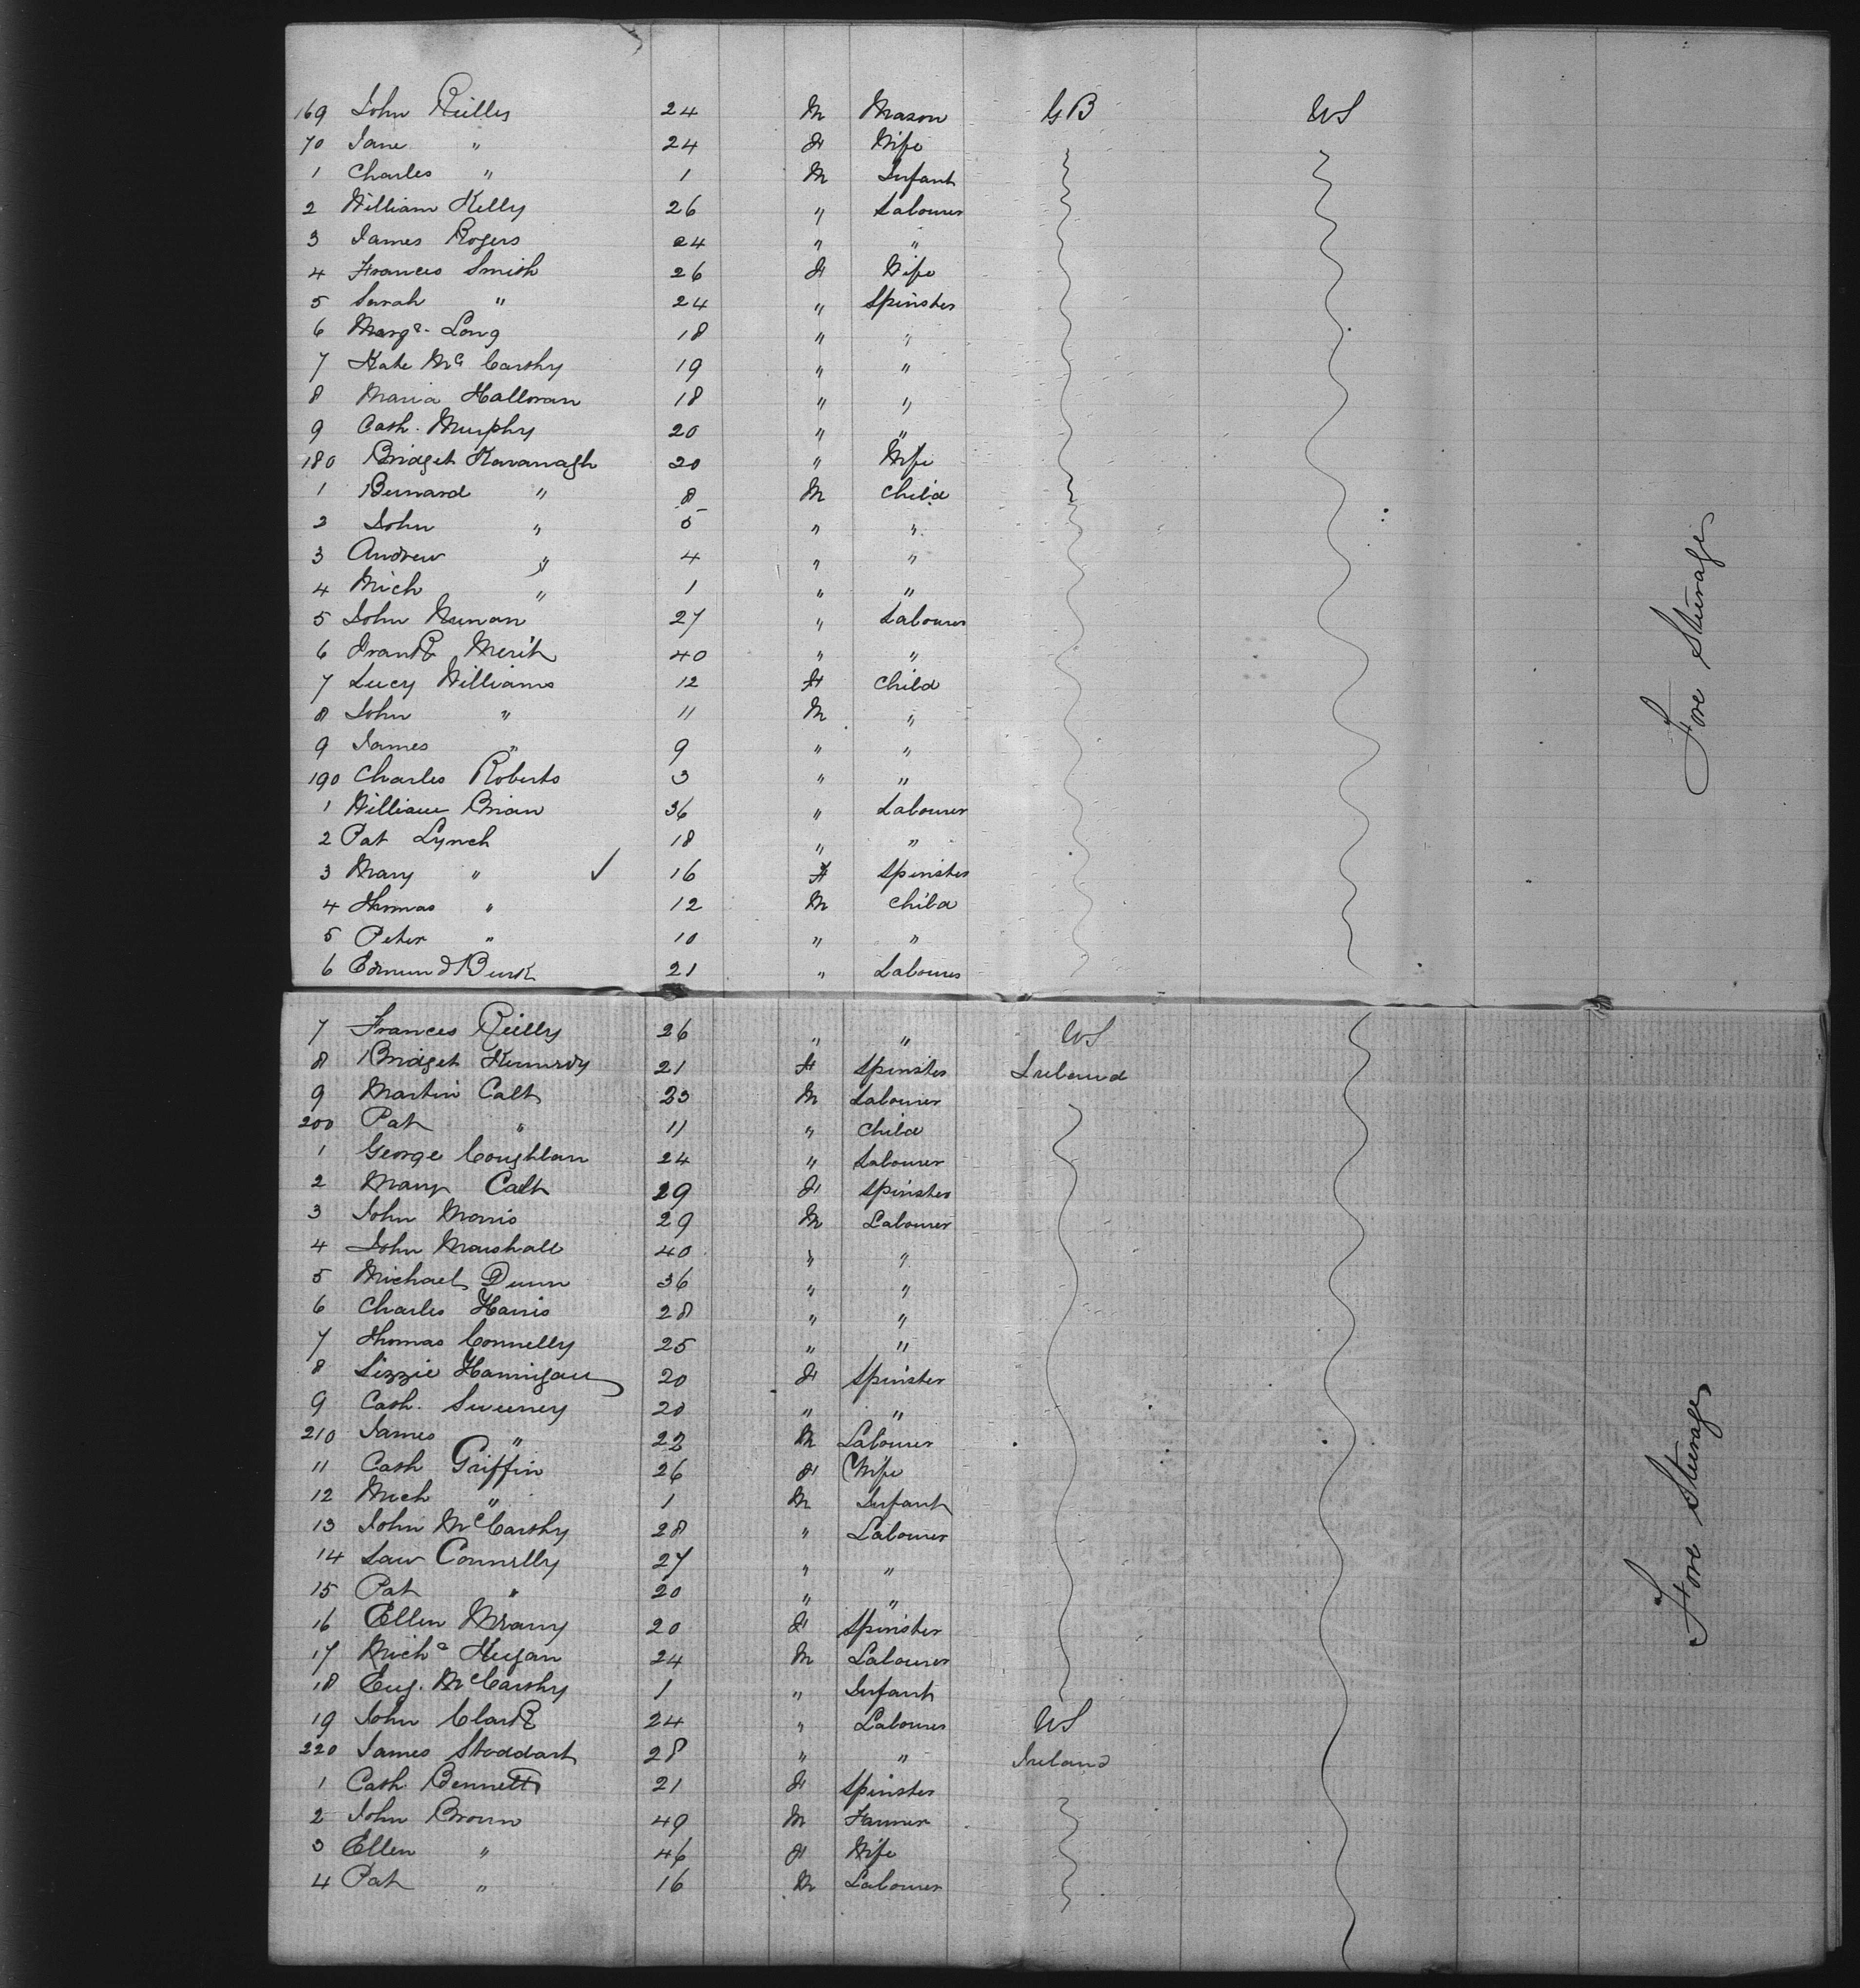 169 John Reilly 24 M Mason GB US
70 Jane " 24 F Wife
1 Charles " 1 M Infant
2 William Kelly 26 " Labourer
3 James Rogers 24 " "
4 Frances Smith 26 F Wife
5 Sarah " 24 " Spinster
6 Margt. Long 18 " "
7 Kate Mc Carthy 19 " "
8 Maria Halloran 18 " "
9 Cath. Murphy 20 " "
180 Bridget Kavanagh 20 " Wife
1 Bernard " 8 M Child
2 John " 5 " "
3 Andrew " 4 " "
4 Mich " 1 " "
5 John Nunan 27 " Labourer
6 Frank 40 " "
7 Lucy Williams 12 F Child
8 John " 11 M "
9 James " 9 " "
190 Charles Roberts 3 " "
1 William Brian 36 " Labourer
2 Pat Lynch 18 " "
3 Mary " ✓ 16 F Spinster
4 Thomas " 12 M Child
5 Peter " 10 " "
6 Edmund Burk 21 " Labourer
Fore Steerage
7 Frances Reilly 26 " " US
8 Bridget Kennedy 21 F Spinster Ireland
9 Martin Calt 23 M Labourer
200 Pat " 11 " Child
1 George Coughlan 24 " Labourer
2 Mary Calt 29 F Spinster
3 John Morris 29 M Labourer
4 John Marshall 40 " "
5 Michael Dunn 36 " "
6 Charles Harris 28 " "
7 Thomas Connelly 25 " "
8 Lizzie Hannigan 20 F Spinster
9 Cath. Sweeney 20 " "
210 James " 22 M Labourer
11 Cath Griffin 26 F Wife
12 Mich " 1 M Infant
13 John McCarthy 28 " Labourer
14 Law Connelly 27 " "
15 Pat " 20 " "
16 Ellen 20 F Spinster
17 Michl Hegan 24 M Labourer
18 Eug. McCarthy 1 " Infant
19 John Clark 24 " Labourer US
220 James Stoddart 28 " " Ireland
1 Cath Bennett 21 F Spinster
2 John Brown 49 M Farmer
3 Ellen " 46 F Wife
4 Pat " 16 M Labourer
Fore Steerage